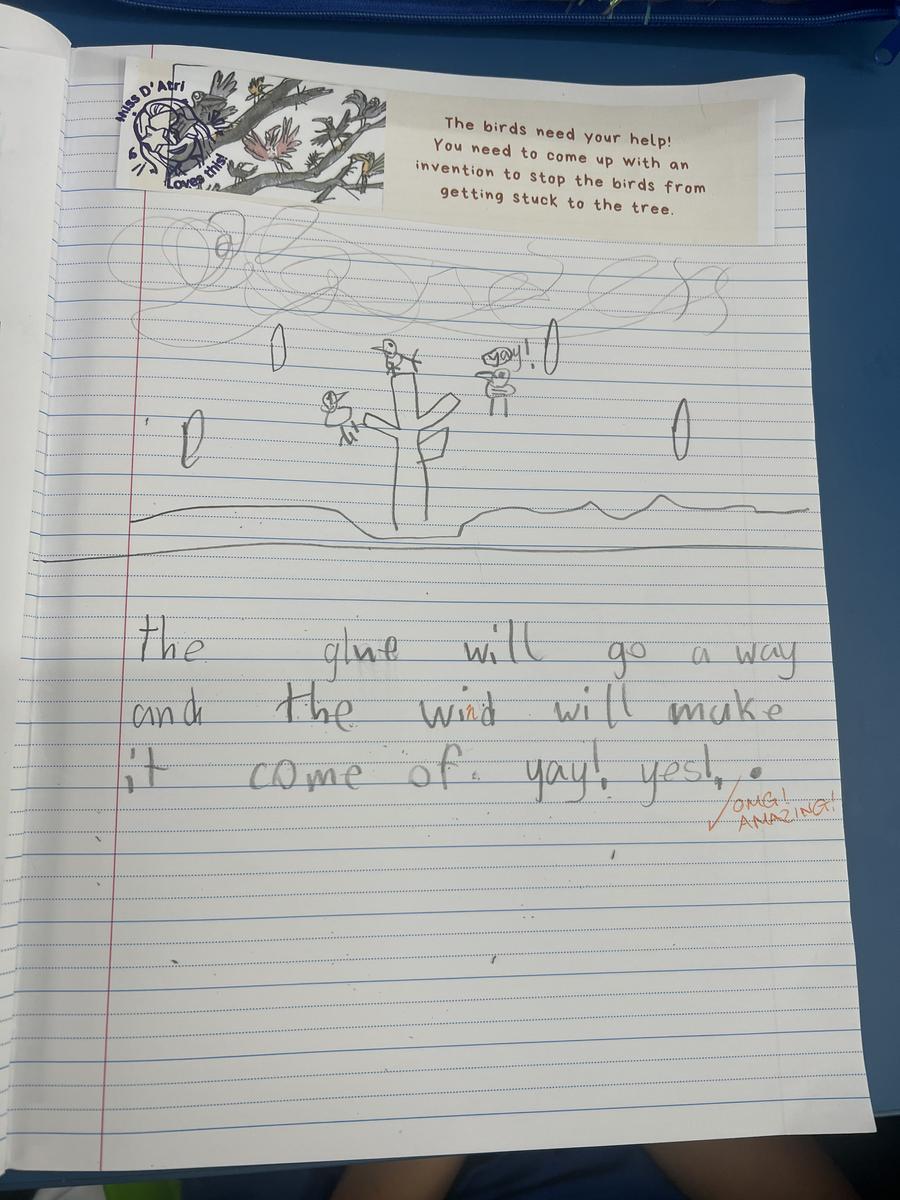 Miss D'Atri
Loves this!
The birds need your help!
You need to come up with an
invention to stop the birds from
getting stuck to the tree.
yay!
the glue will go a way
and the wind will make
it come of. yay! yes!.
OMG!
AMAZING!